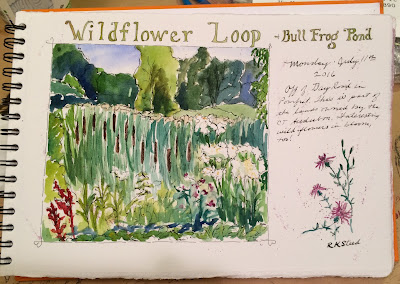 Wildflower Loop - Bull Frog Pond
Monday - July 11th
2016
Off of Day Road in
Pomfret there is part of
the lands owned by the
CT Audubon. Interesting
wildflowers in bloom,
too!
RKSteed